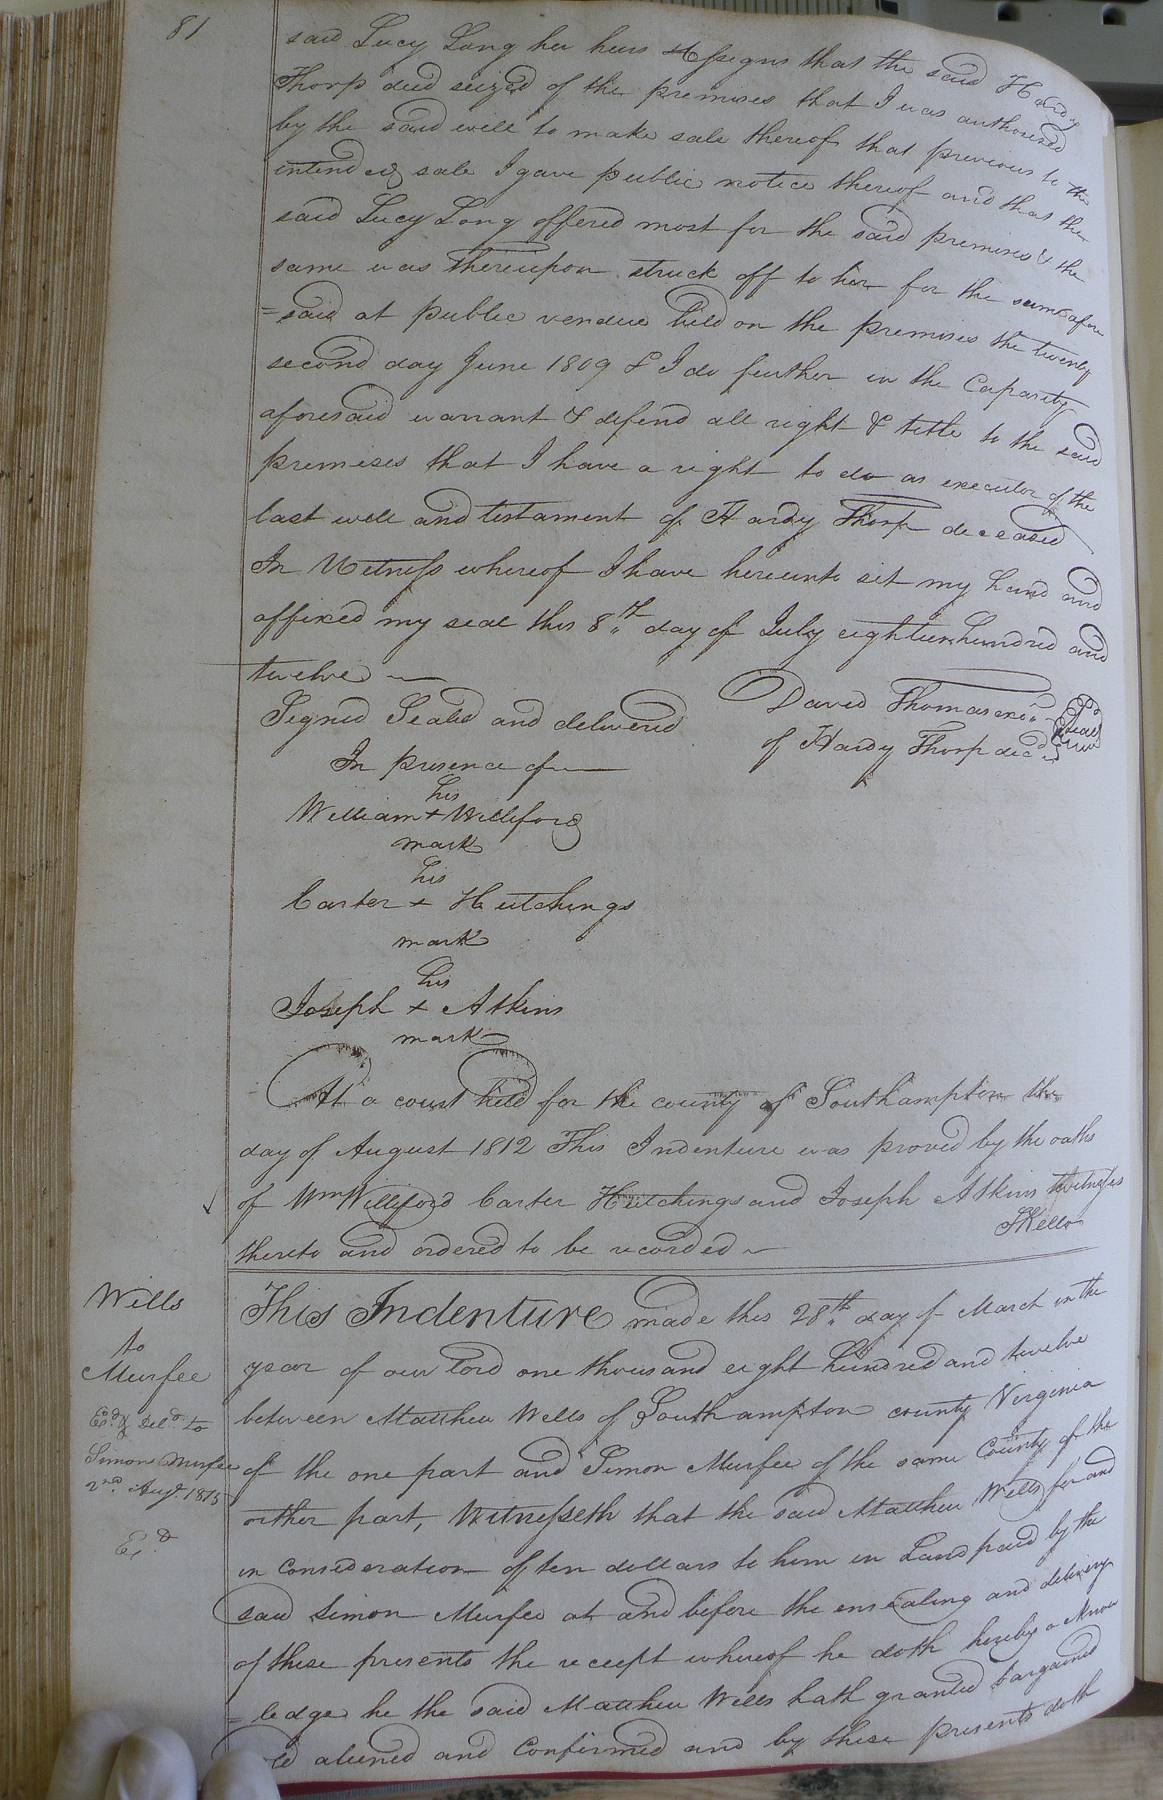 81
said Lucy Long her heirs & assigns that the said Hardy
Thorp died seized of the premises that I was authorised
by the said will to make sale thereof that previous to the
intended sale I gave public notice thereof and that the
said Lucy Long offered most for the said premises & the
same was thereupon struck off to her for the sum afore
=said at public vendue held on the premises the twenty
second day June 1809 & I do further in the Capacity
aforesaid warrant & defend all right & title to the said
premises that I have a right to do as executor of the
last will and testament of Hardy Thorp deceased
In Witness whereof I have hereunto set my hand and
affixed my seal this 8th day of July eighteen hundred and
twelve
Signed Sealed and delivered
In presence of
David Thomas exr.
of Hardy Thorp decd.
Seal
his
William + Williford
mark
his
Carter + Hutchings
mark
his
Joseph + Atkins
mark
At a court held for the county of Southampton the
day of August 1812 This Indenture was proved by the oaths
of Wm Williford Carter Hutchings and Joseph Atkins witnesses
thereto and ordered to be recorded
SKello
Wills
to
Murfee
Exd. & Deld. to
Simon Murfee
2nd. Augt. 1815
Exd.
This Indenture made this 28th day of March in the
year of our lord one thousand eight hundred and twelve
between Matthew Wells of Southampton county Virginia
of the one part and Simon Murfee of the same County of the
orther part, Witnesseth that the said Matthew Wells for and
in consideration of ten dollars to him in Land paid by the
said Simon Murfee at and before the ensealing and delivery
of these presents the receipt whereof he doth hereby acknow
=ledge he the said Matthew Wells hath granted bargained
sold aliened and Confirmed and by these presents doth